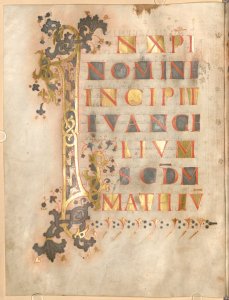 IN XPI
NOMINE
INCIPIT
EVANGE
LIVM
SCDM
MATHEV̄